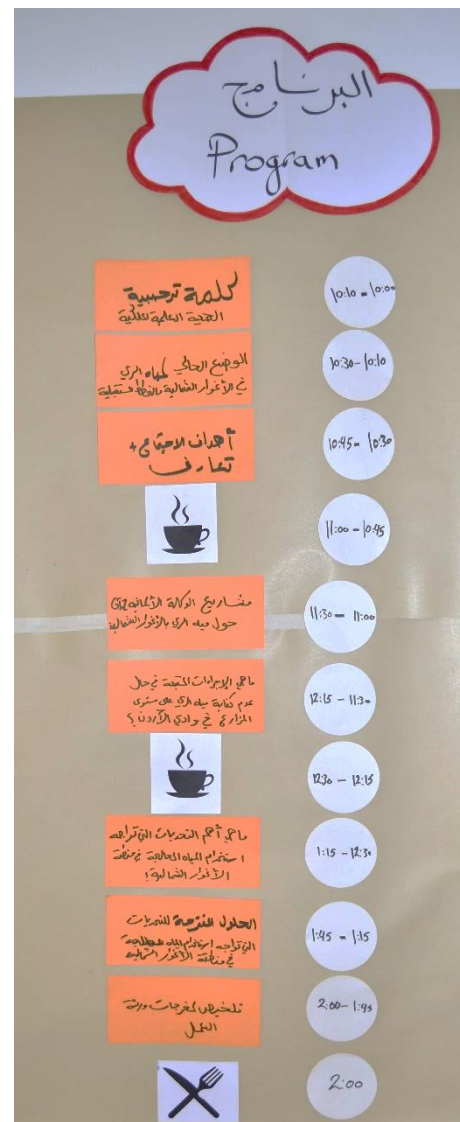 البرنامج
Program
كلمة ترحيبية
الجمعية العلمية الملكية
10:10 - 10:00
الوضع الحالي لمياه الري
في الأغوار الشمالية والخطط المستقبلية
10:30 - 10:10
أهداف الاجتماع +
تعارف
10:45 - 10:30
11:00 - 10:45
مشاريع الوكالة الألمانية GIZ
حول مياه الري بالأغوار الشمالية
11:30 - 11:00
ما هي الإجراءات المتبعة في حال
عدم كفاية مياه الري على مستوى
المزارع في وادي الأردن؟
12:15 - 11:30
12:30 - 12:15
ما هي أهم التحديات التي تواجه
استخدام المياه المعالجة في منطقة
الأغوار الشمالية؟
1:15 - 12:30
الحلول المقترحة للتحديات
التي تواجه استخدام المياه المعالجة
في منطقة الأغوار الشمالية
1:45 - 1:15
تلخيص لمخرجات ورشة
العمل
2:00 - 1:45
2:00